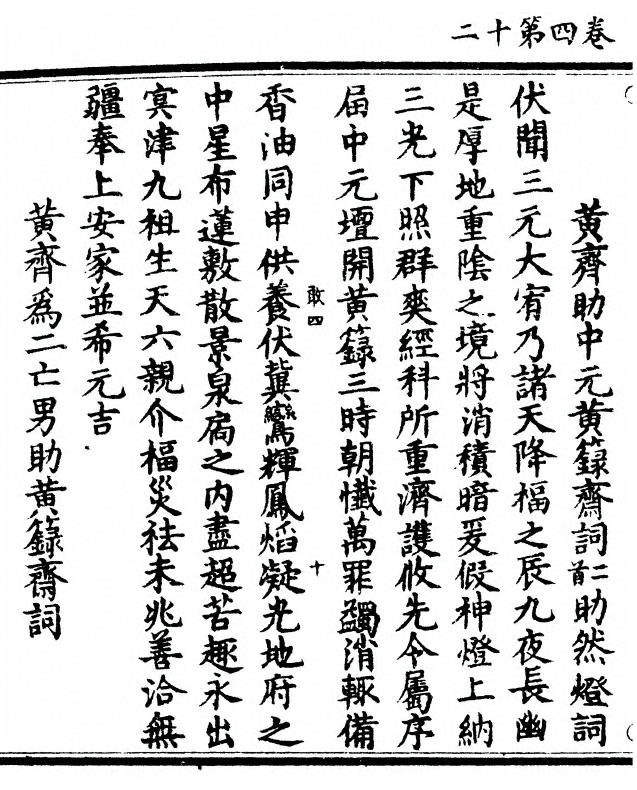 卷四第十二
黄齊助中元黄籙齋詞二首助然燈詞
伏聞三元大宥乃諸天降福之辰九夜長幽
是厚地重陰之境將消積暗爰假神燈上納
三光下照群爽經科所重濟護攸先今屬序
届中元壇開黄籙三時朝懺萬罪蠲消輙備
香油同申供養伏冀鸞輝鳳焰凝光地府之
敢四
十
中星布蓮敷散景泉扃之内盡超苦趣永出
㝠津九祖生天六親介福災祛未兆善洽無
疆奉上安家並希元吉
黄齊爲二亡男助黄籙齋詞